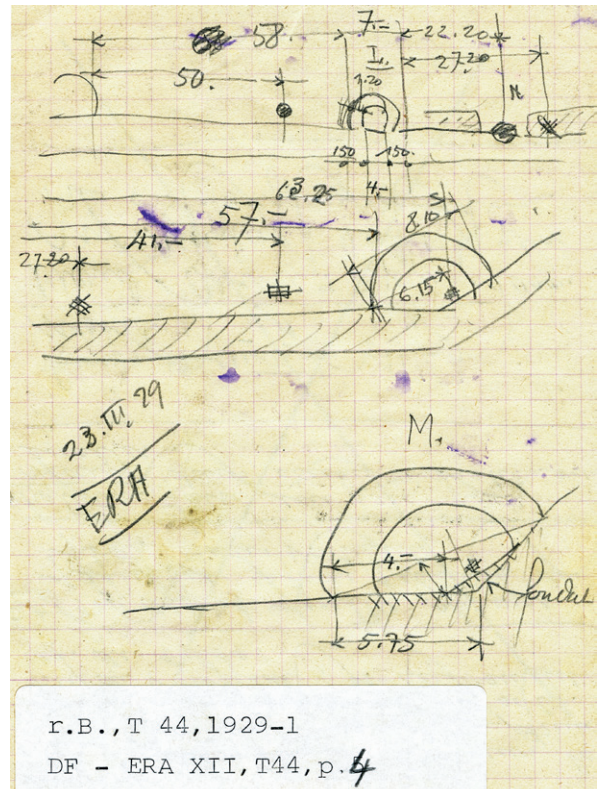 58.
7.-
22.20
I.
27.20
50.
1.20
M
150
150
63.25
4.-
57.-
8.10
41.-
27.20
6.15
23.III.29
ERA
M.
4.-
fondul
5.75
r.B.,T 44,1929-1
DF - ERA XII,T44,p.4